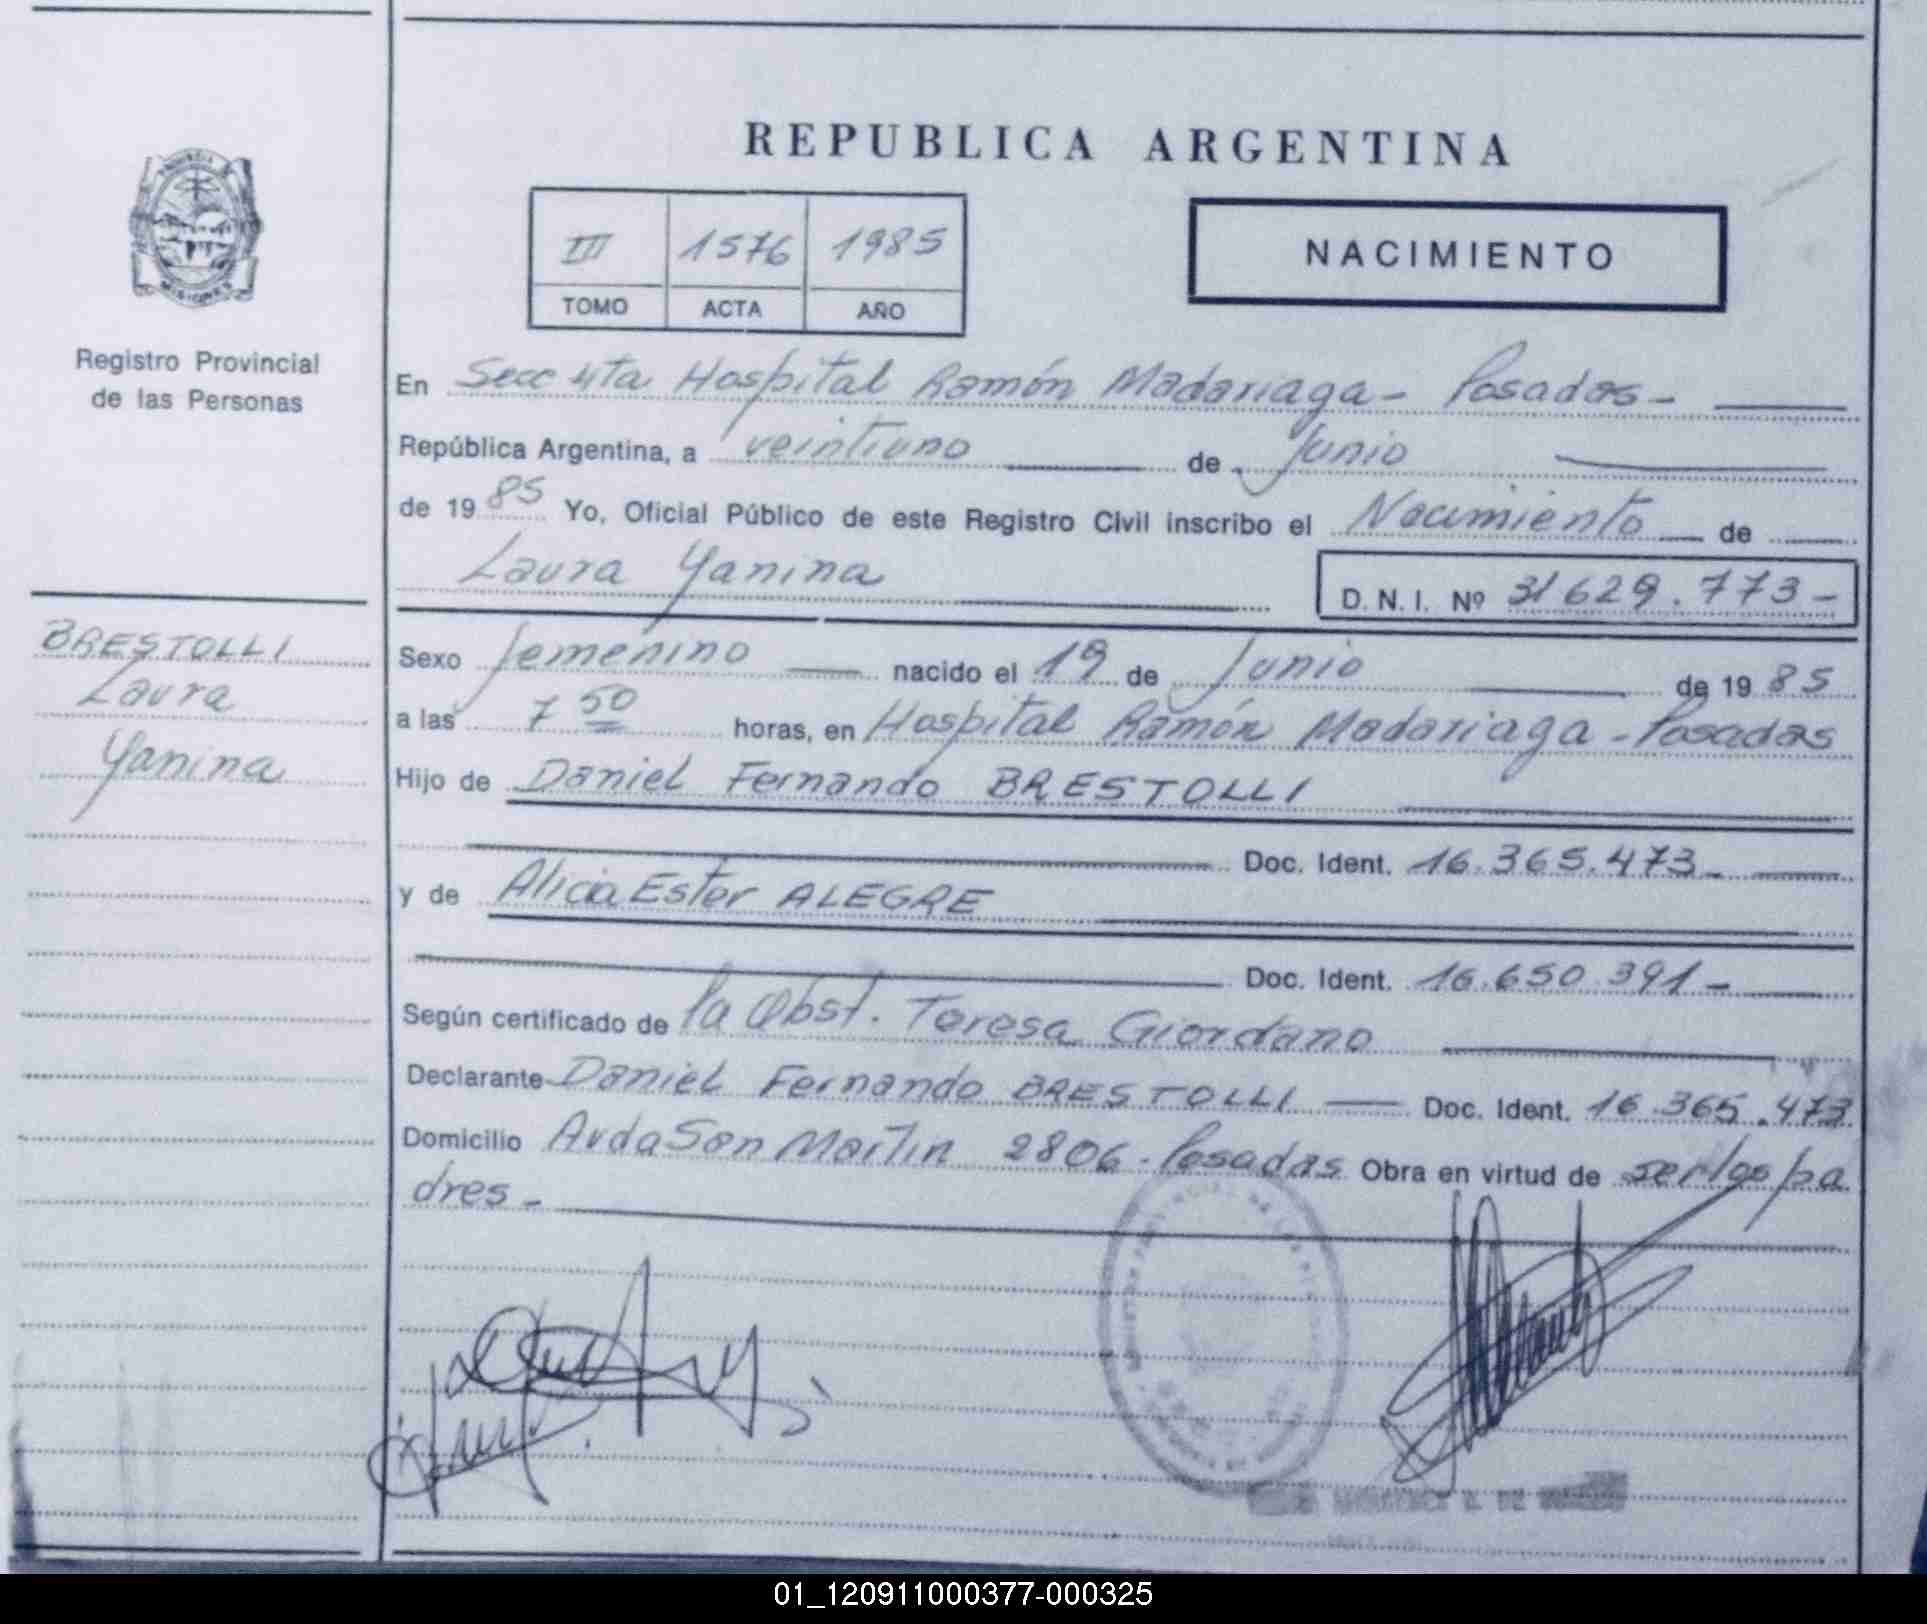 REPUBLICA ARGENTINA
III 1576 1985
TOMO ACTA AÑO
NACIMIENTO
MISIONES
Registro Provincial
de las Personas
En Secc 4ta Hospital Ramón Madariaga - Posadas -
República Argentina, a veintiuno de Junio
de 1985 Yo, Oficial Público de este Registro Civil inscribo el Nacimiento de
Laura Yanina D. N. I. Nº 31629.773-
BRESTOLLI
Laura
Yanina
Sexo femenino nacido el 19 de Junio de 1985
a las 7 50 horas, en Hospital Ramón Madariaga - Posadas
Hijo de Daniel Fernando BRESTOLLI
Doc. Ident. 16.365.473-
y de Alicia Ester ALEGRE
Doc. Ident. 16.650.391-
Según certificado de la Obst. Teresa Giordano
Declarante Daniel Fernando BRESTOLLI Doc. Ident. 16.365.473
Domicilio Avda San Martin 2806 - Posadas Obra en virtud de ser los pa
dres -
01_120911000377-000325